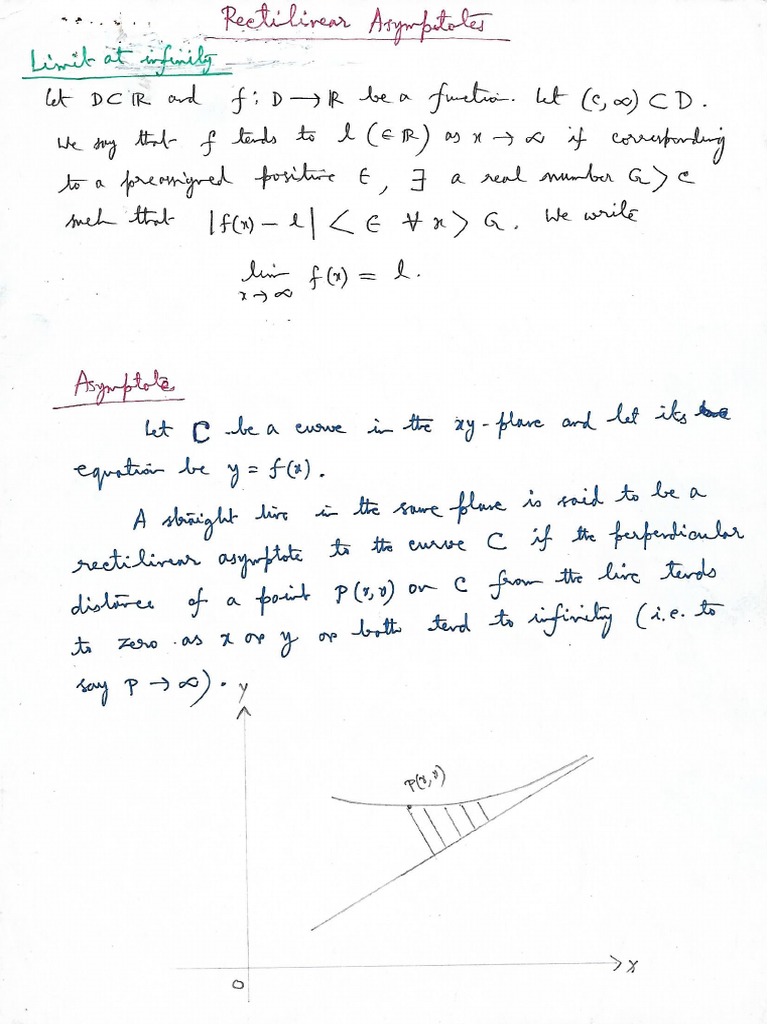 Rectilinear Asymptotes
Limit at infinity
Let D⊂ℝ and f: D→ℝ be a function. Let (c,∞)⊂D.
We say that f tends to l (∈ℝ) as x→∞ if corresponding
to a preassigned positive ∈, ∃ a real number G>c
such that |f(x)-l| < ∈ ∀ x > G. We write
lim x→∞ f(x) = l.
Asymptote
Let C be a curve in the xy-plane and let its
equation be y = f(x).
A straight line in the same plane is said to be a
rectilinear asymptote to the curve C if the perpendicular
distance of a point P(x,y) on C from the line tends
to zero as x or y or both tend to infinity (i.e. to
say P→∞).
Y
P(x,y)
X
O